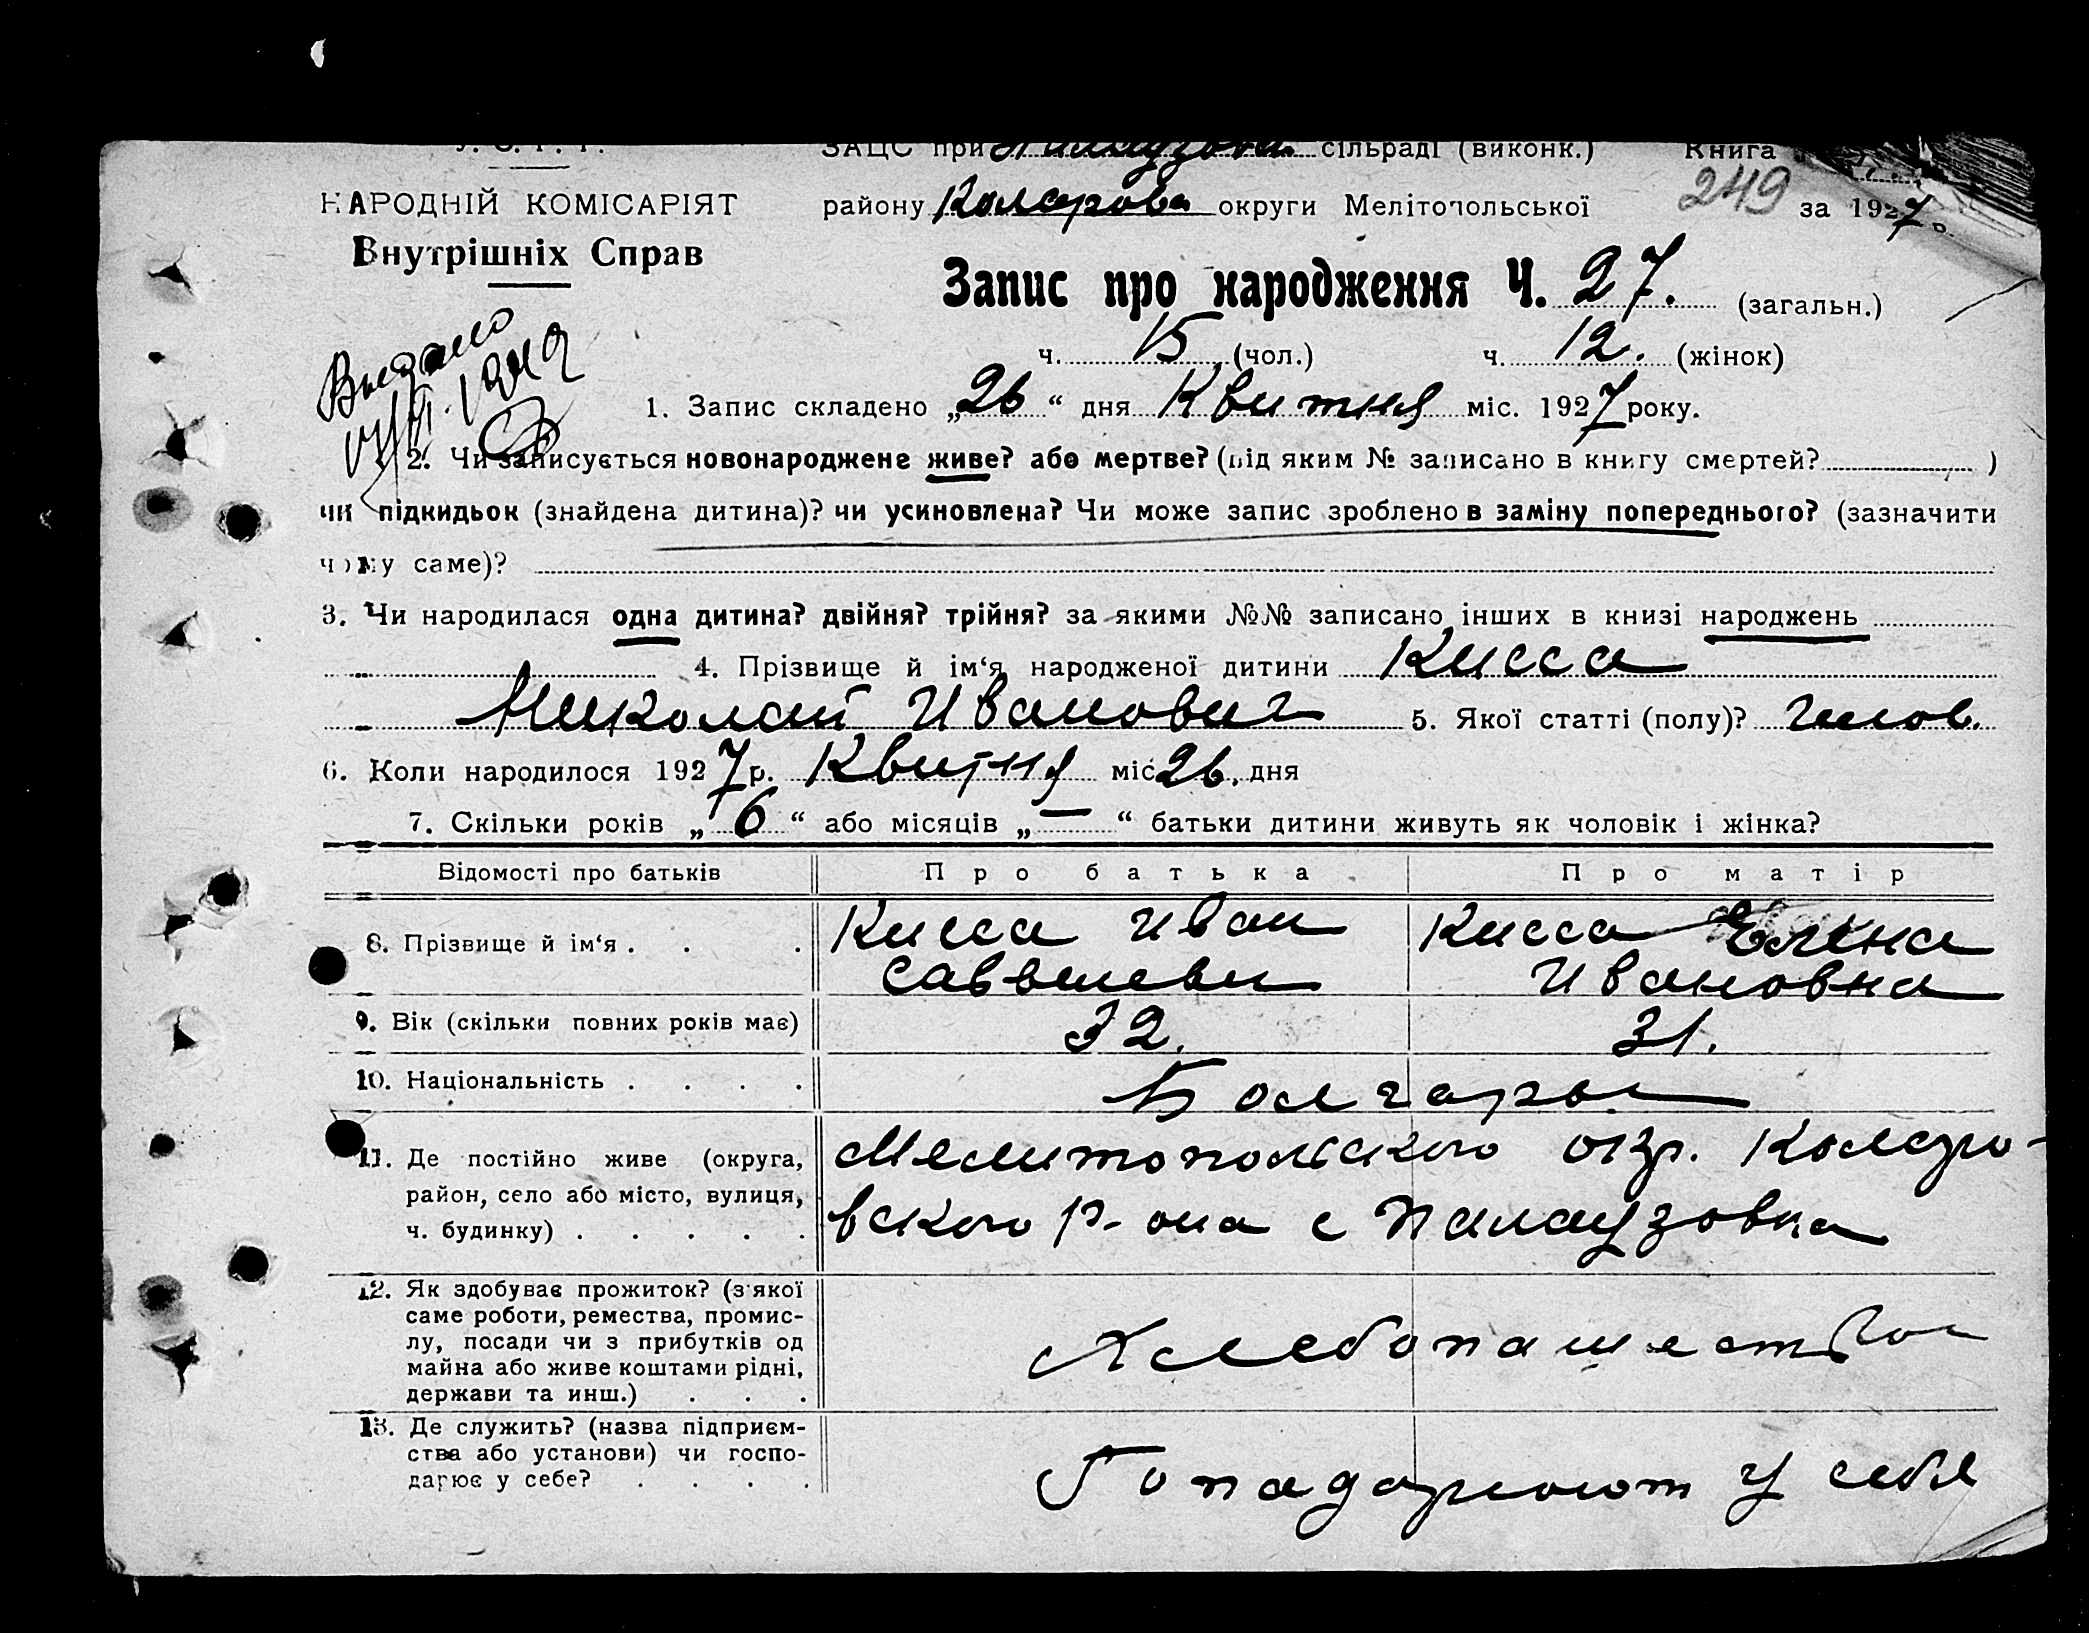 У. С. Р. Р. ЗАЦС при Палаузовк сільраді (виконк.) Книга
249
НАРОДНІЙ КОМІСАРІЯТ району Коларовск округи Мелітопольської за 1927 р.
Внутрішніх Справ
Запис про народження Ч. 27. (загальн.)
Выдано
ч. 15 (чол.) ч. 12. (жінок)
1. Запис складено „26“ дня Квитня міс. 1927 року.
2. Чи записується новонароджене живе? або мертве? (під яким № записано в книгу смертей? )
чи підкидьок (знайдена дитина)? чи усиновлена? Чи може запис зроблено в заміну попереднього? (зазначити
чому саме)?
3. Чи народилася одна дитина? двійня? трійня? за якими №№ записано інших в книзі народжень
4. Прізвище й ім‘я народженої дитини Кисса
Николай Иванович 5. Якої статті (полу)? челов.
6. Коли народилося 1927 р. Квитня міс 26. дня
7. Скільки років „ 6 “ або місяців „ — “ батьки дитини живуть як чоловік і жінка?
Відомості про батьків Про батька Про матір
8. Прізвище й ім‘я . . . Кисса Иван Кисса Елена
Саввишеви Ивановна
9. Вік (скільки повних років має) 32. 31.
10. Національність . . . . Болгары
11. Де постійно живе (округа, Мелитопольского окр. Коларо-
район, село або місто, вулиця, вского р-она с Палаузовка
ч. будинку) . . . . .
12. Як здобуває прожиток? (з якої
саме роботи, ремества, промис-
лу, посади чи з прибутків од Хлебопашеством
майна або живе коштами рідні,
держави та инш.) . . .
13. Де служить? (назва підприєм-
ства або установи) чи госпо-
дарює у себе? . . . . Гопадарюют у себя